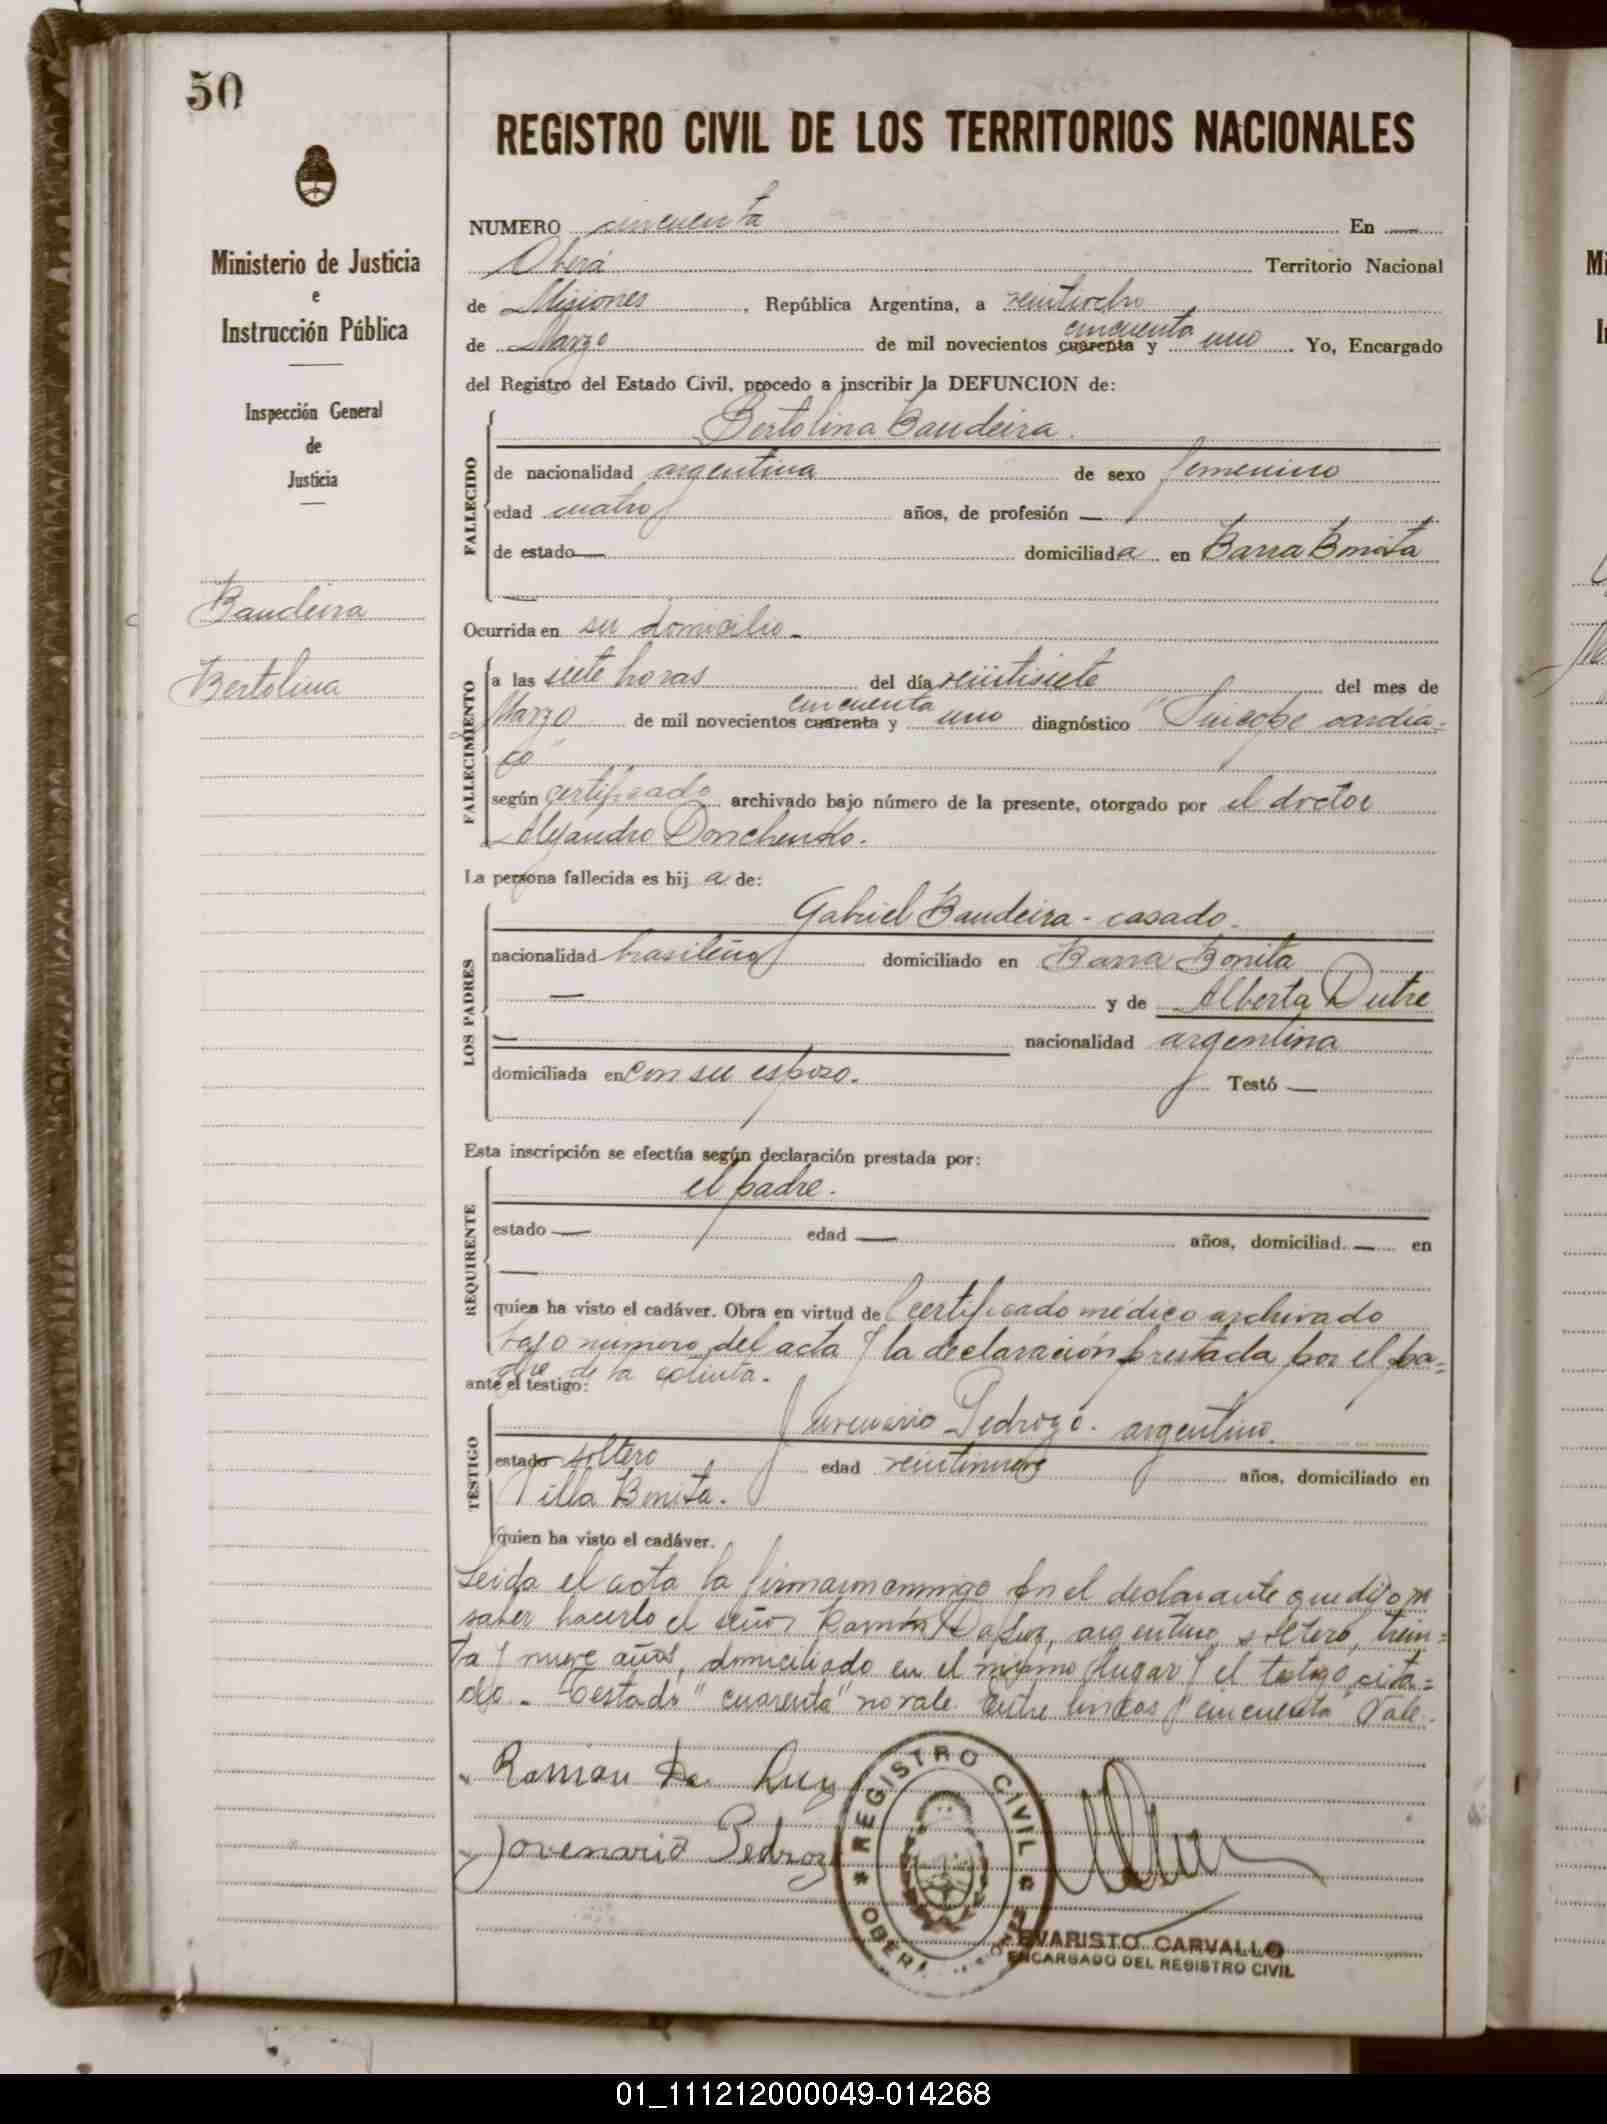 50
REGISTRO CIVIL DE LOS TERRITORIOS NACIONALES
Ministerio de Justicia
e
Instrucción Pública
Inspección General
de
Justicia
Bandeira
Bertolina
NUMERO cincuenta En —
Oberá Territorio Nacional
de Misiones, República Argentina, a veintiocho
de Marzo de mil novecientos cuarenta cincuenta y uno Yo, Encargado
del Registro del Estado Civil, procedo a inscribir la DEFUNCION de:
FALLECIDO
Bertolina Bandeira.
de nacionalidad argentina de sexo femenino
edad cuatro años, de profesión —
de estado — domiciliada en Barra Bonita
—
Ocurrida en su domicilio.-
FALLECIMIENTO
a las siete horas del día veintisiete del mes de
Marzo de mil novecientos cuarenta cincuenta y uno diagnóstico "Sincope cardia-
co"
según certificado archivado bajo número de la presente, otorgado por el doctor
Alejandro
La persona fallecida es hija de:
LOS PADRES
Gabriel Bandeira - casado.
nacionalidad brasileña domiciliado en Barra Bonita
— y de Alberta Dutre
— nacionalidad argentina
domiciliada en con su esposo. Testó —
Esta inscripción se efectúa según declaración prestada por:
REQUIRENTE
el padre.
estado — edad — años, domiciliad — en
—
quien ha visto el cadáver. Obra en virtud del certificado médico archivado
bajo número del acta y la declaración prestada por el pa-
dre de la extinta.
ante el testigo:
TESTIGO
Juvenario Pedrozo. argentino.
estado soltero edad veintinueve años, domiciliado en
Villa Bonita.
quien ha visto el cadáver.
Leida el acta la firman conmigo por el declarante que dijo no
saber hacerlo el señor Ramón Da Luz, argentino, soltero, trein-
ta y nueve años, domiciliado en el mismo lugar y el testigo cita-
do.- Testado "cuarenta" no vale. Entre lineas "cincuenta" Vale.-
Ramon Da Luz
Jovenario Pedrozo
REGISTRO CIVIL
OBERA
EVARISTO CARVALLO
ENCARGADO DEL REGISTRO CIVIL
01_111212000049-014268